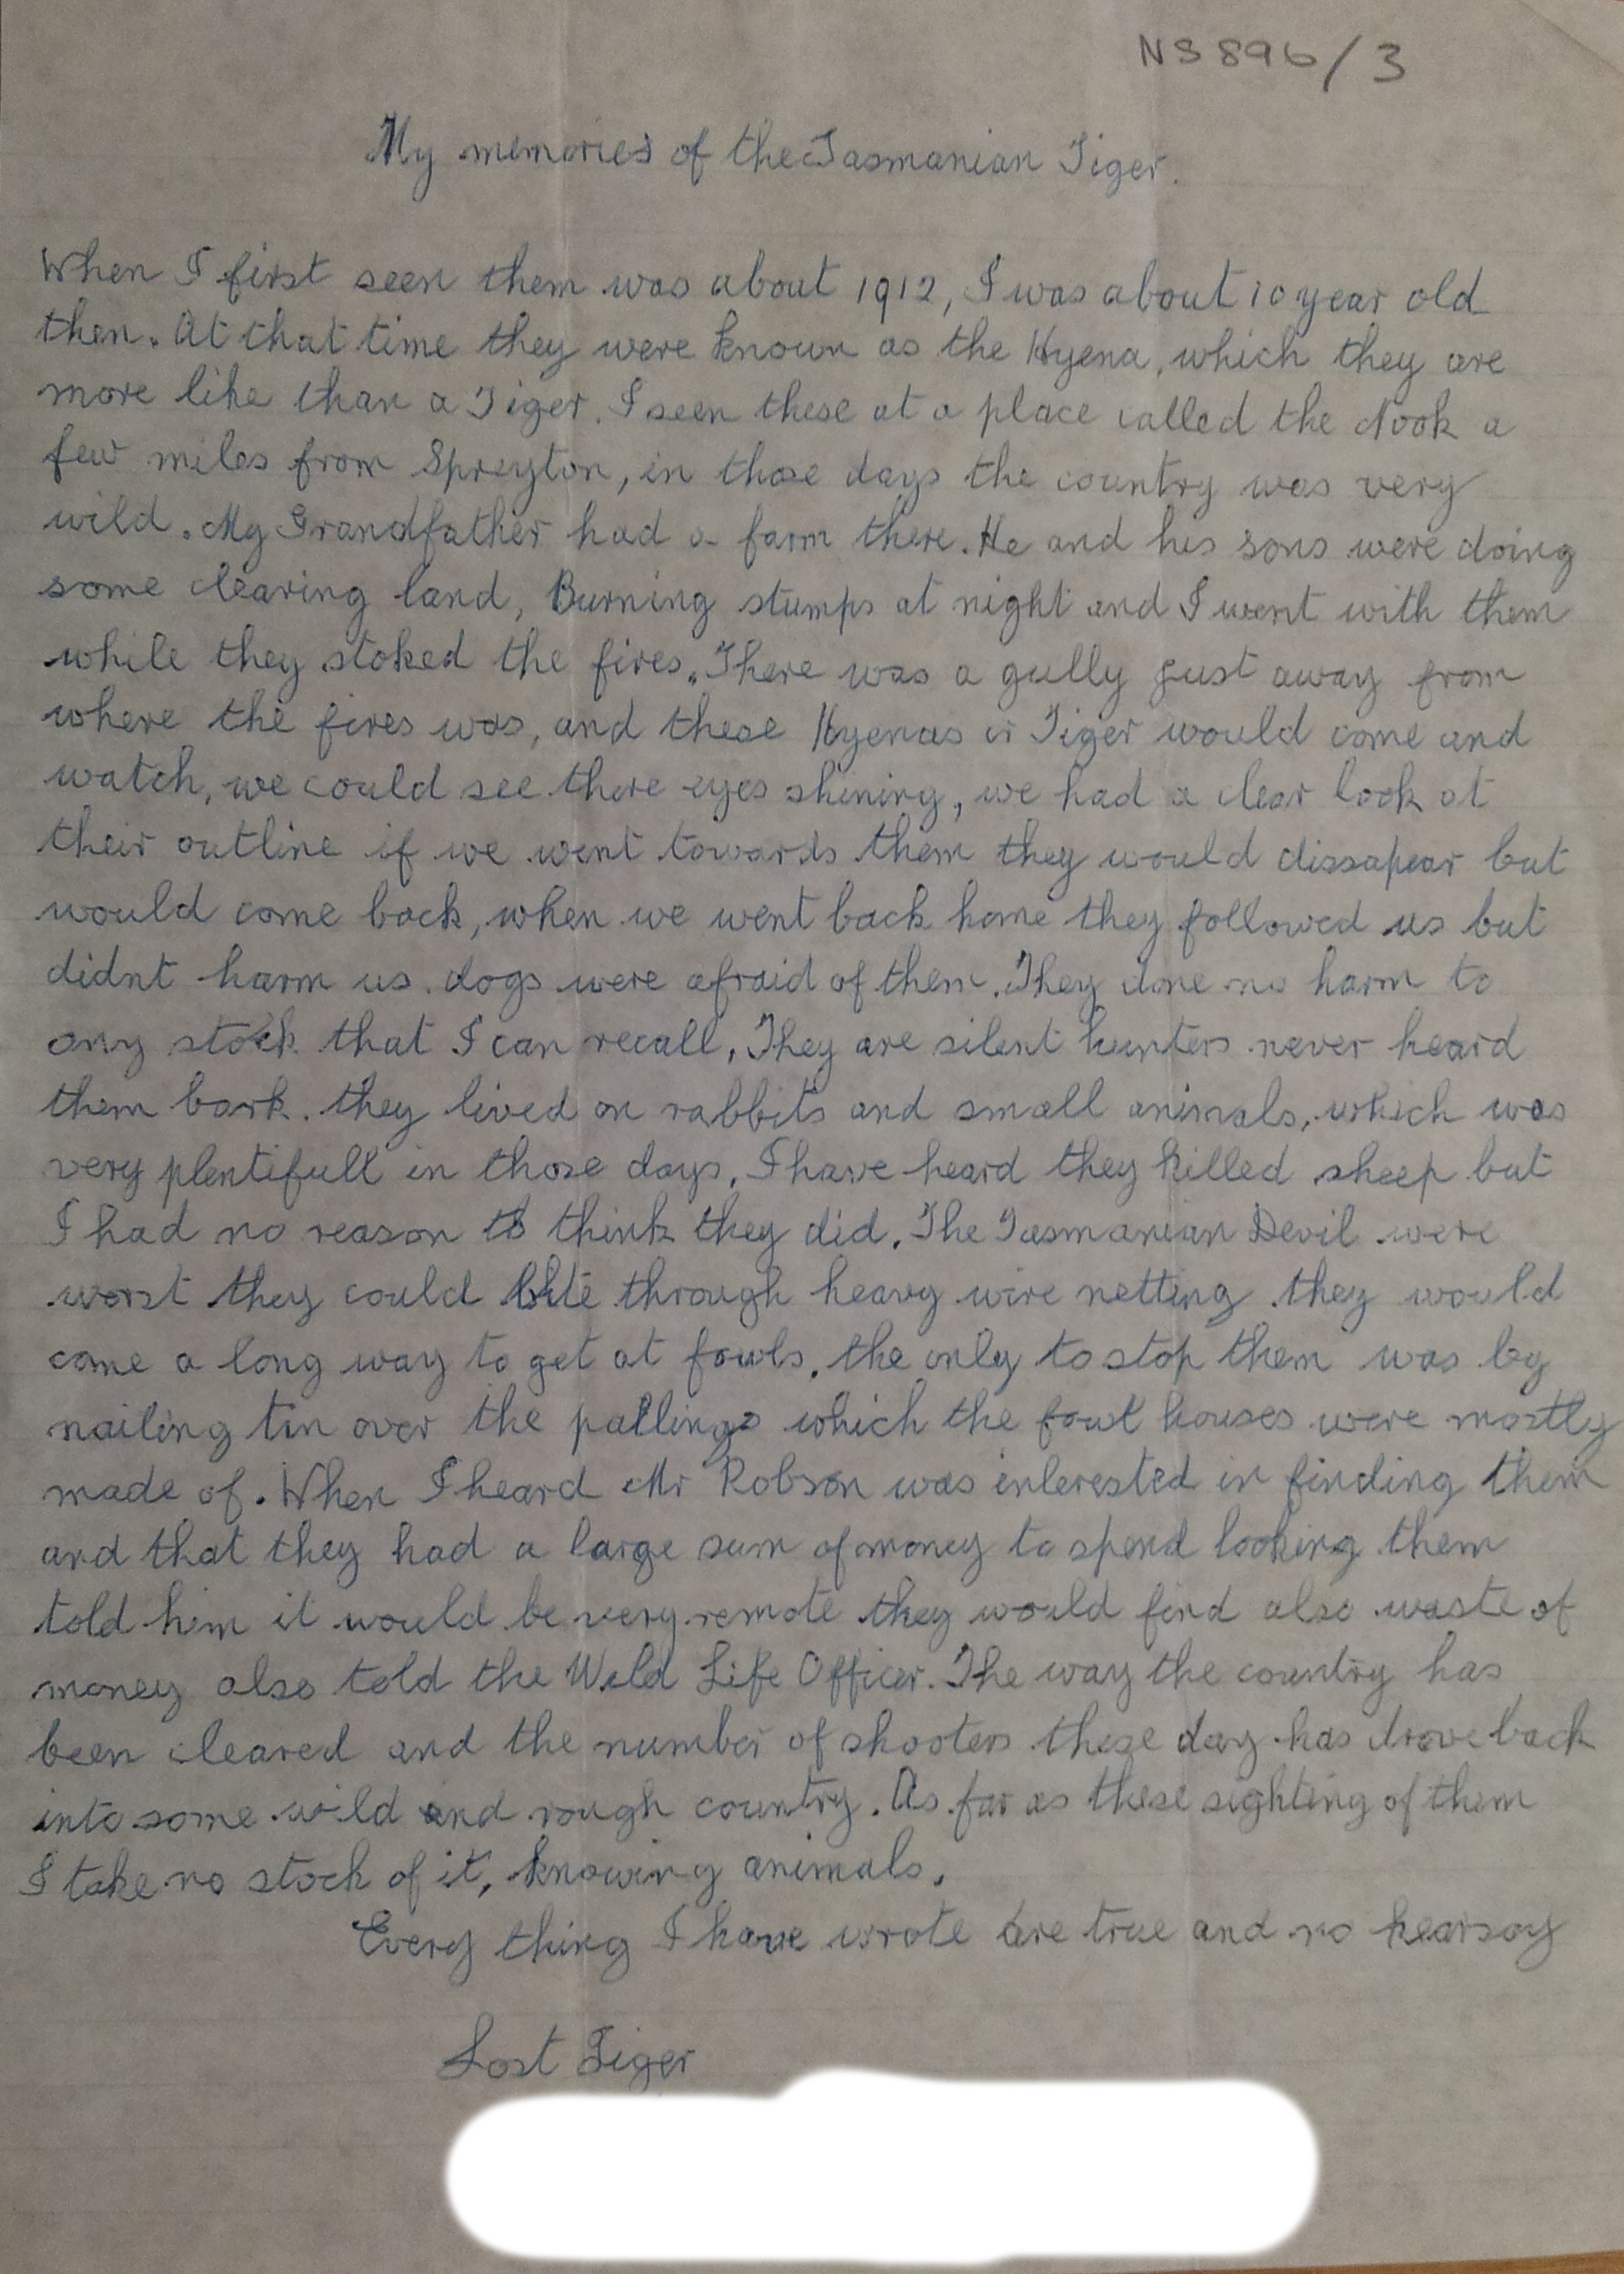 NS896/3
My memories of the Tasmanian Tiger.
When I first seen them was about 1912, I was about 10 year old
then. At that time they were known as the Hyena, which they are
more like than a Tiger. I seen these at a place called the Nook a
few miles from Spreyton, in those days the country was very
wild. My Grandfather had a farm there. He and his sons were doing
some clearing land, Burning stumps at night and I went with them
while they stoked the fires. There was a gully just away from
where the fires was, and these Hyenas or Tiger would come and
watch, we could see there eyes shining, we had a clear look at
their outline if we went towards them they would dissapear but
would come back, when we went back home they followed us but
didnt harm us. dogs were afraid of them. They done no harm to
any stock that I can recall, They are silent hunters never heard
them bark. they lived on rabbits and small animals, which was
very plentifull in those days, I have heard they killed sheep but
I had no reason to think they did. The Tasmanian Devil were
worst they could bite through heavy wire netting they would
come a long way to get at fowls. the only to stop them was by
nailing tin over the pallings which the fowl houses were mostly
made of. When I heard Mr Robson was interested in finding them
and that they had a large sum of money to spend looking them
told him it would be very remote they would find also waste of
money also told the Wild Life Officer. The way the country has
been cleared and the number of shooters these day has drove back
into some wild and rough country. As far as these sighting of them
I take no stock of it, knowing animals.
Every thing I have wrote are true and no hearsay
Lost Tiger